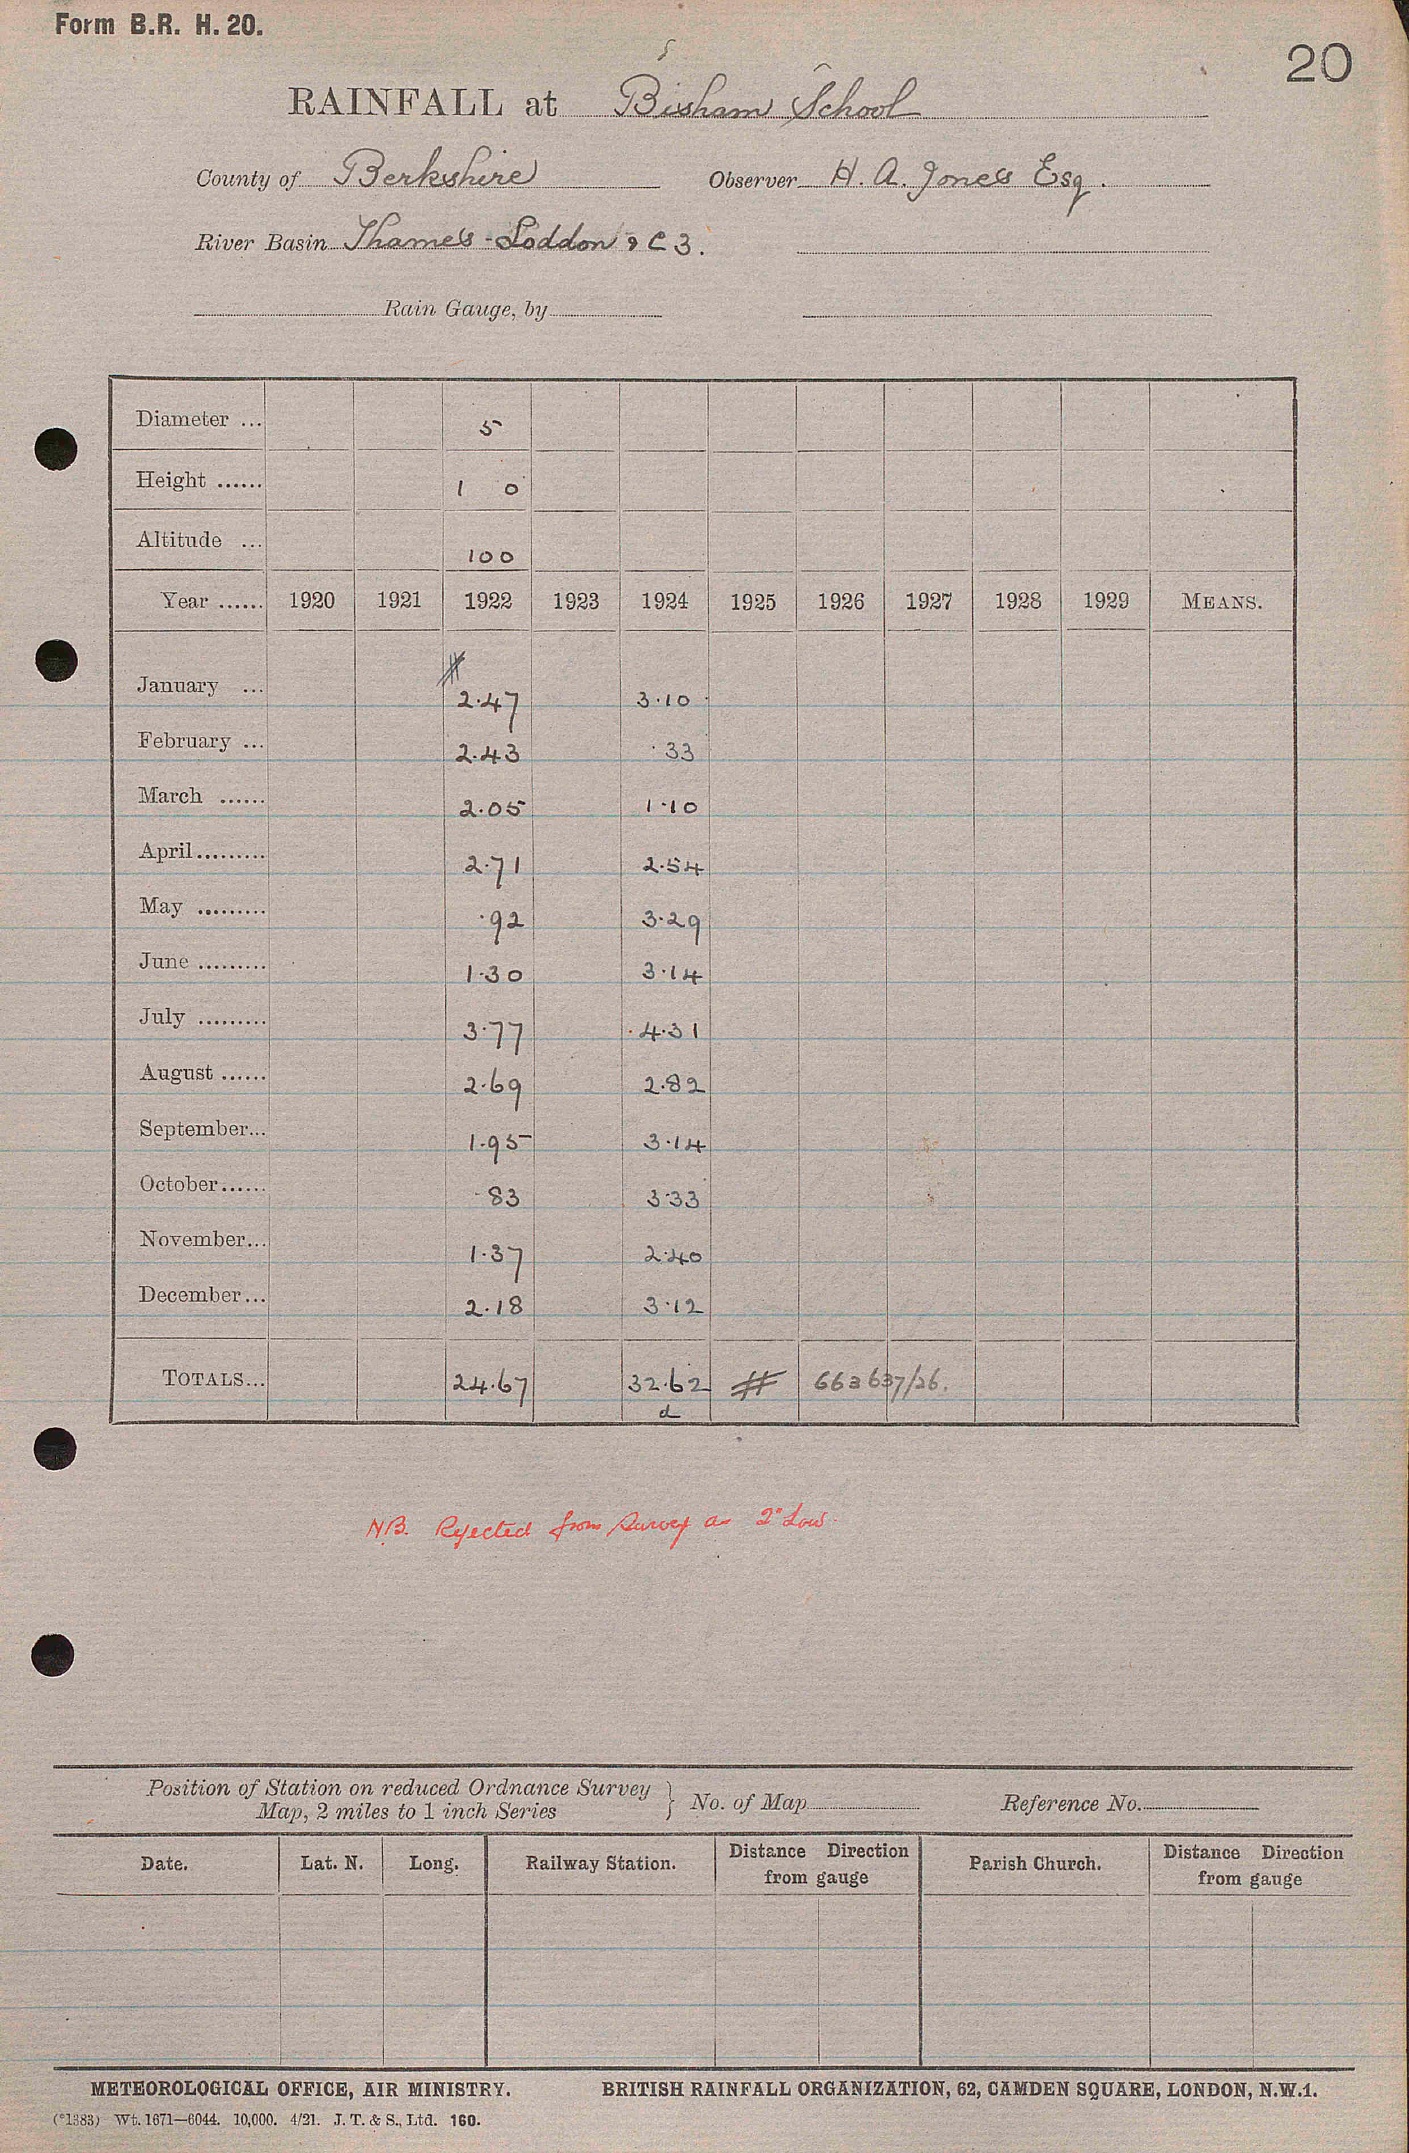 Form B.R. H. 20.
20
RAINFALL at Bisham School
County of Berkshire Observer H. A. Jones Esq.
River Basin Thames - Loddon & C 3.
Rain Gauge, by
Diameter ... 5
Height ...... 1 0
Altitude ... 100
Year ...... 1920 1921 1922 1923 1924 1925 1926 1927 1928 1929 MEANS.
#
January ... 2.47 3.10
February ... 2.43 .33
March ...... 2.05 1.10
April......... 2.71 2.54
May ......... .92 3.29
June ......... 1.30 3.14
July ......... 3.77 4.31
August ...... 2.69 2.82
September... 1.95 3.14
October...... .83 3.33
November... 1.37 2.40
December... 2.18 3.12
TOTALS... 24.67 32.62 # 663637/26.
d
N.B. Rejected from Survey as 2" Low
Position of Station on reduced Ordnance Survey
Map, 2 miles to 1 inch Series } No. of Map Reference No.
Date. Lat. N. Long. Railway Station. Distance Direction from gauge Parish Church. Distance Direction from gauge
METEOROLOGICAL OFFICE, AIR MINISTRY. BRITISH RAINFALL ORGANIZATION, 62, CAMDEN SQUARE, LONDON, N.W.1.
(*1383) Wt. 1671—6044. 10,000. 4/21. J. T. & S., Ltd. 160.